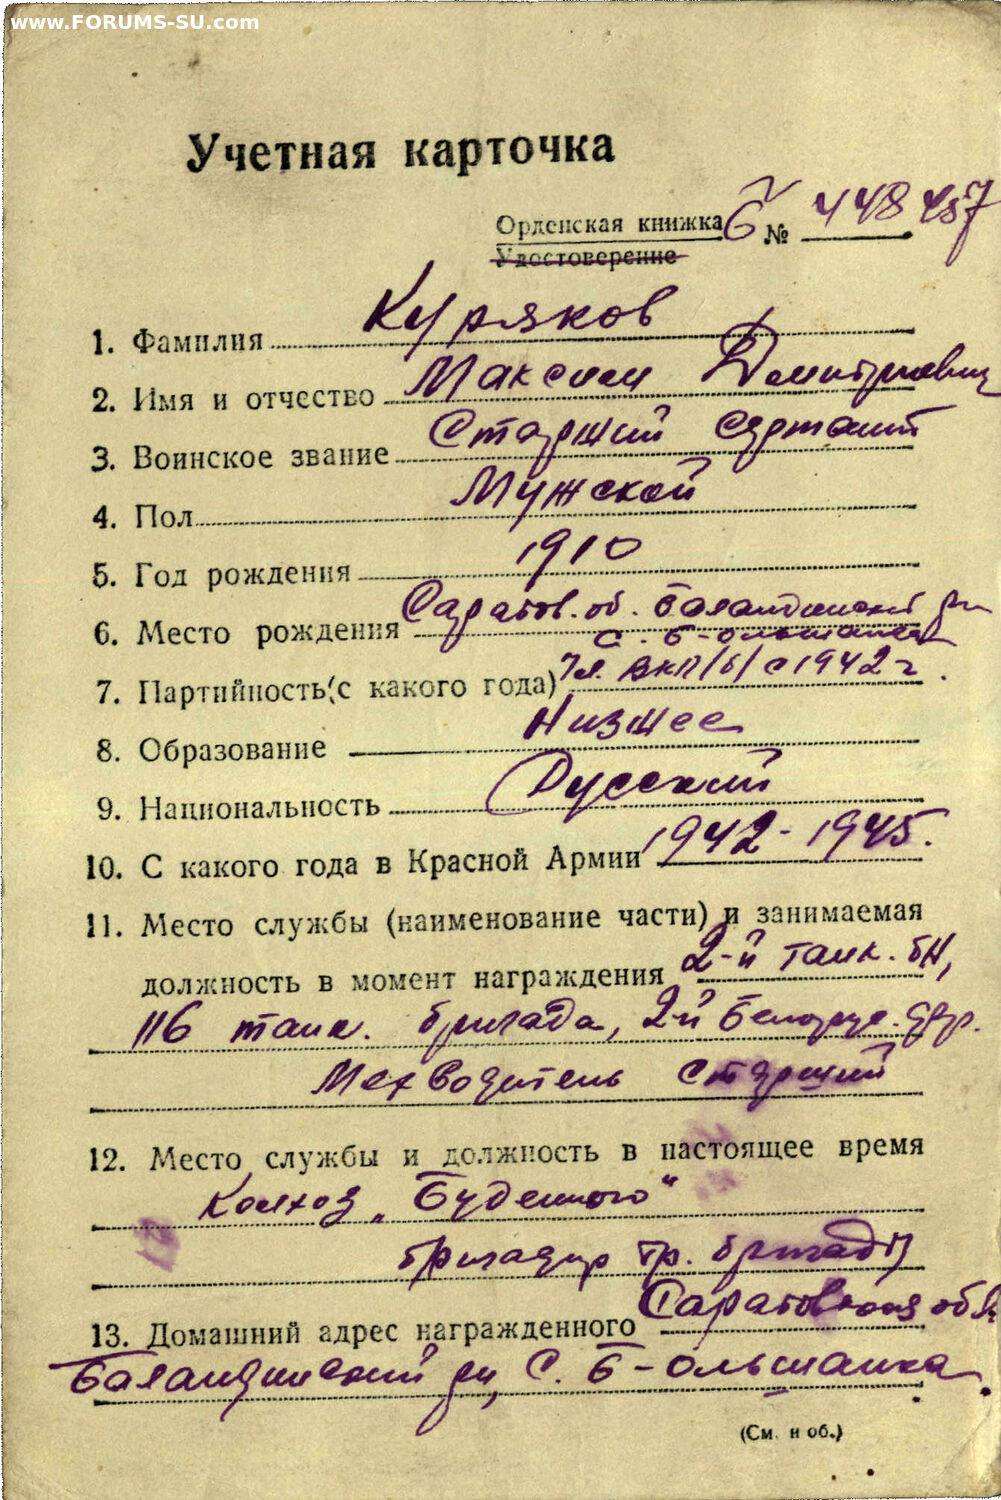 www.FORUMS-SU.com
Учетная карточка
Орденская книжка Б № 448457
Удостоверение
1. Фамилия Куряков
2. Имя и отчество Максим Дмитриевич
3. Воинское звание Старший сержант
4. Пол Мужской
5. Год рождения 1910
6. Место рождения Саратов. об. Баландинский рн
с. Б-Ольшанка
7. Партийность (с какого года) Чл. ВКП/б/ с 1942 г.
8. Образование Низшее
9. Национальность Русский
10. С какого года в Красной Армии 1942-1945.
11. Место службы (наименование части) и занимаемая
должность в момент награждения 2-й танк. бн,
116 танк. бригада, 2й Белорус. фр.
Мехводитель старший
12. Место службы и должность в настоящее время
Колхоз „Буденного"
бригадир тр. бригады
13. Домашний адрес награжденного Саратовская обл
Баландинский рн, с. Б-Ольшанка.
(См. н об.)